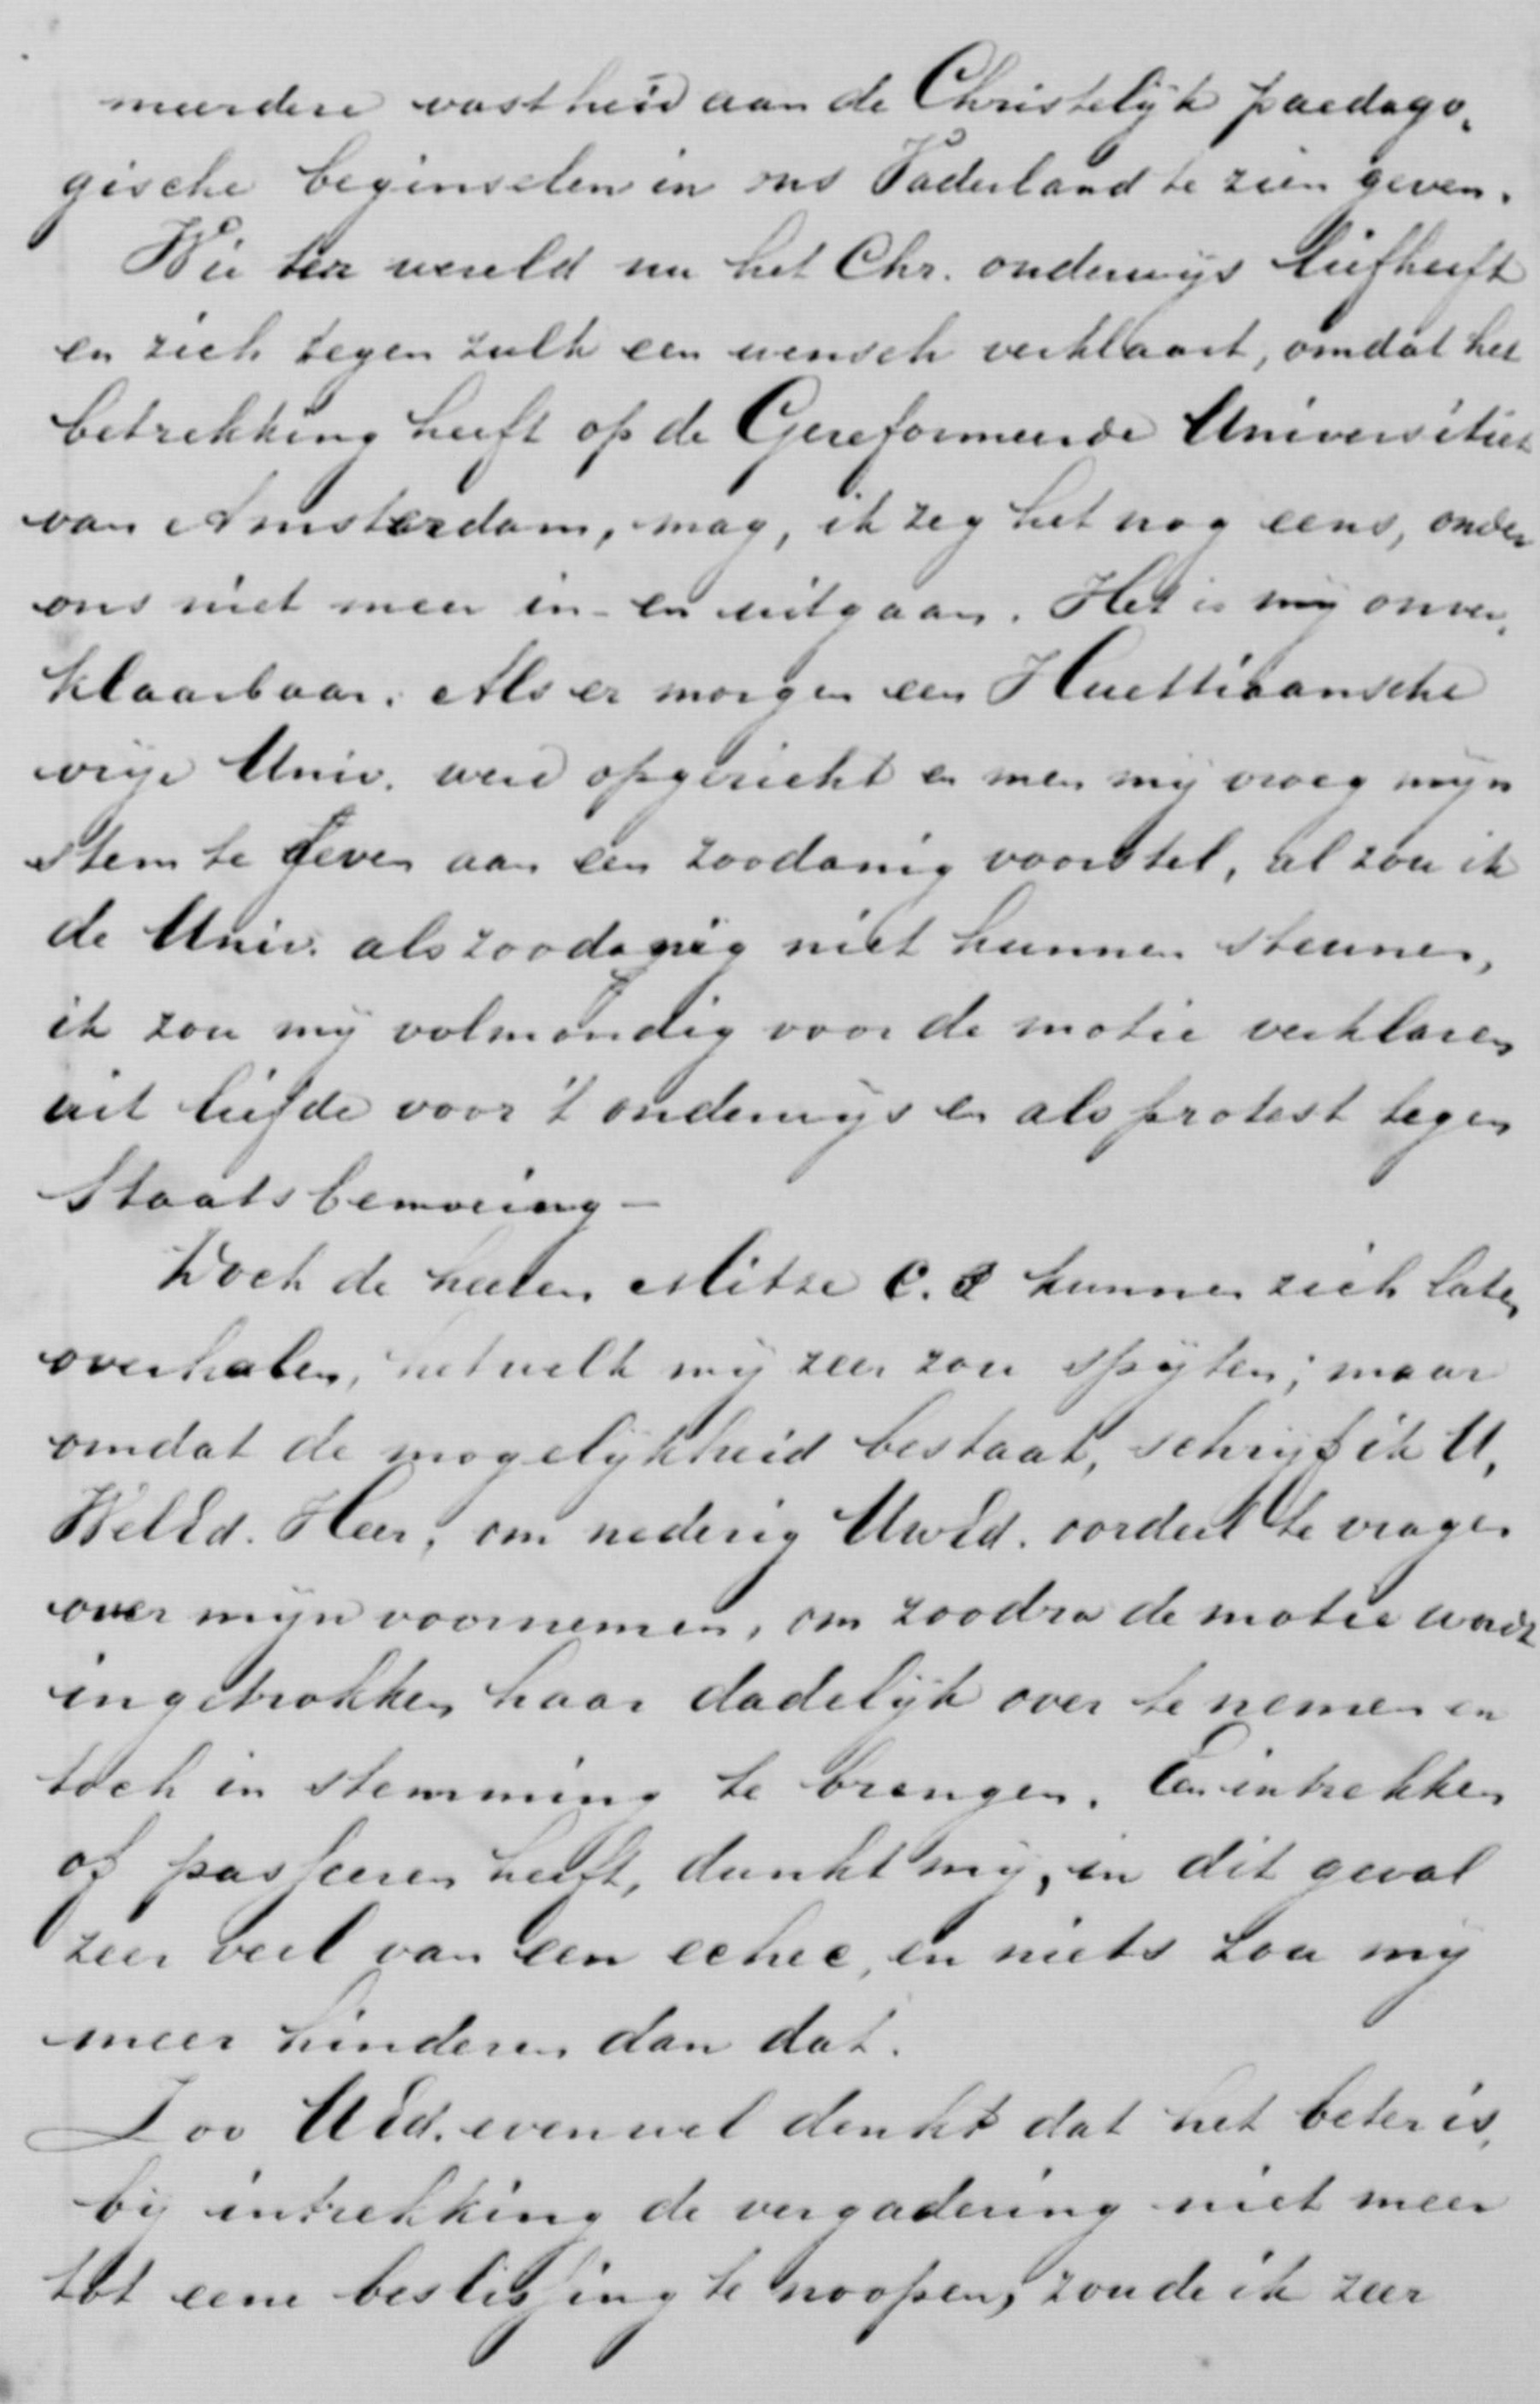 meerdere vastheid aan de Christelijk paedago-
gische beginselen in ons Vaderland te zien geven.
Wie ter wereld nu het Chr. onderwijs liefheeft
en zich tegen zulk een wensch verklaart, omdat het
betrekking heeft op de Gereformeerde Universiteit
van Amsterdam, mag, ik zeg het nog eens, onder
ons niet meer in- en uitgaan. Het is mij onver-
klaarbaar. Als er morgen een Huettiaansche
vrije Univ. werd opgericht en men mij vroeg mijn
stem te geven aan een zoodanig voorstel, al zou ik
de Univ. als zoodanig niet kunnen steunen,
ik zou mij volmondig voor de motie verklaren
uit liefde voor 't onderwijs en als protest tegen
Staatsbemoeiing —
Doch de heeren Mitze c.s kunnen zich laten
overhalen, hetwelk mij zeer zou spijten; maar
omdat de mogelijkheid bestaat, schrijf ik U,
WelEd. Heer, om nederig UwEd. oordeel te vragen
over mijn voornemen, om zoodra de motie wordt
ingetrokken haar dadelijk over te nemen en
toch in stemming te brengen. Een intrekken
of passeeren heeft, dunkt mij, in dit geval
zeer veel van een echec, en niets zou mij
meer hinderen dan dat.
Zoo UEd. evenwel denkt dat het beter is,
bij intrekking de vergadering niet meer
tot eene beslissing te noopen, zoude ik zeer